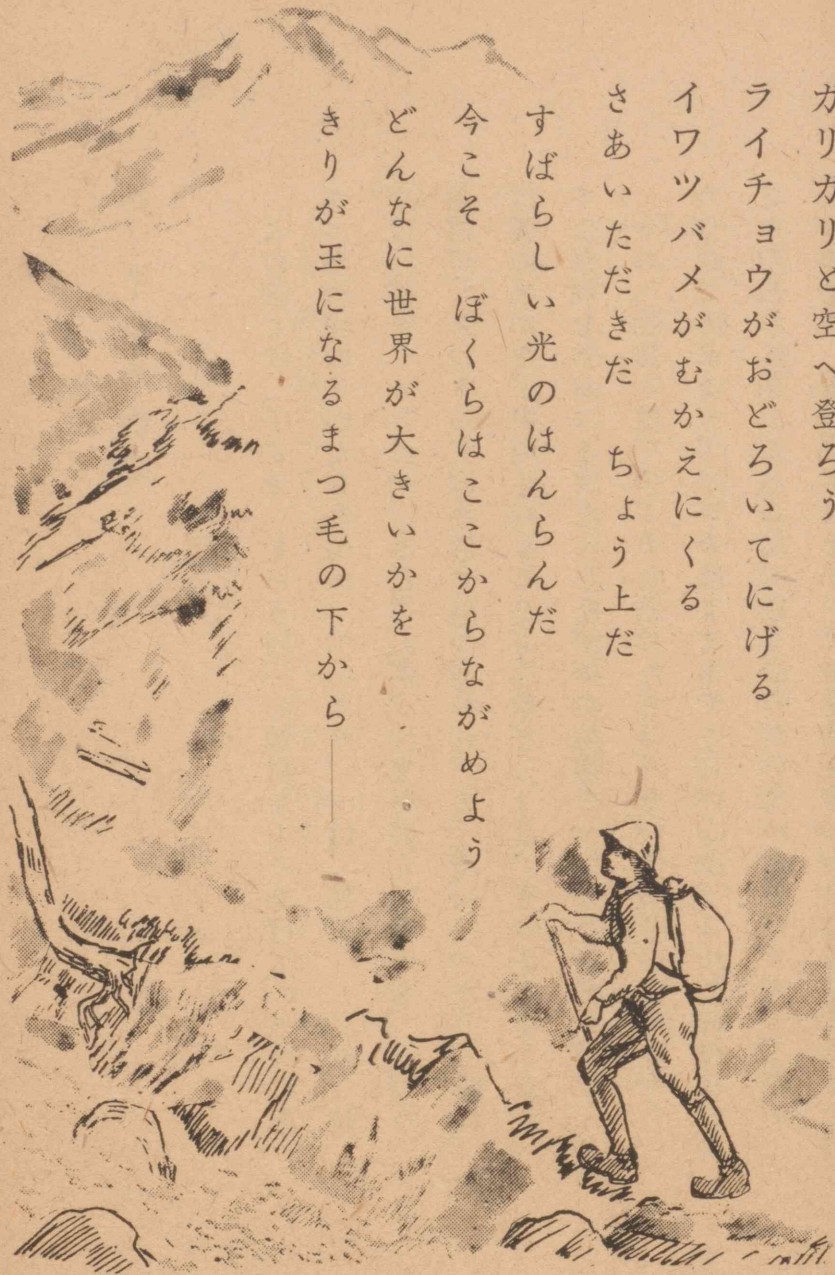 カリカリと空へ登ろう
ライチョウがおどろいてにげる
イワツバメがむかえにくる
さあいただきだ　ちょう上だ
すばらしい光のはんらんだ
今こそ　ぼくらはここからながめよう
どんなに世界が大きいかを
きりが玉になるまつ毛の下から――